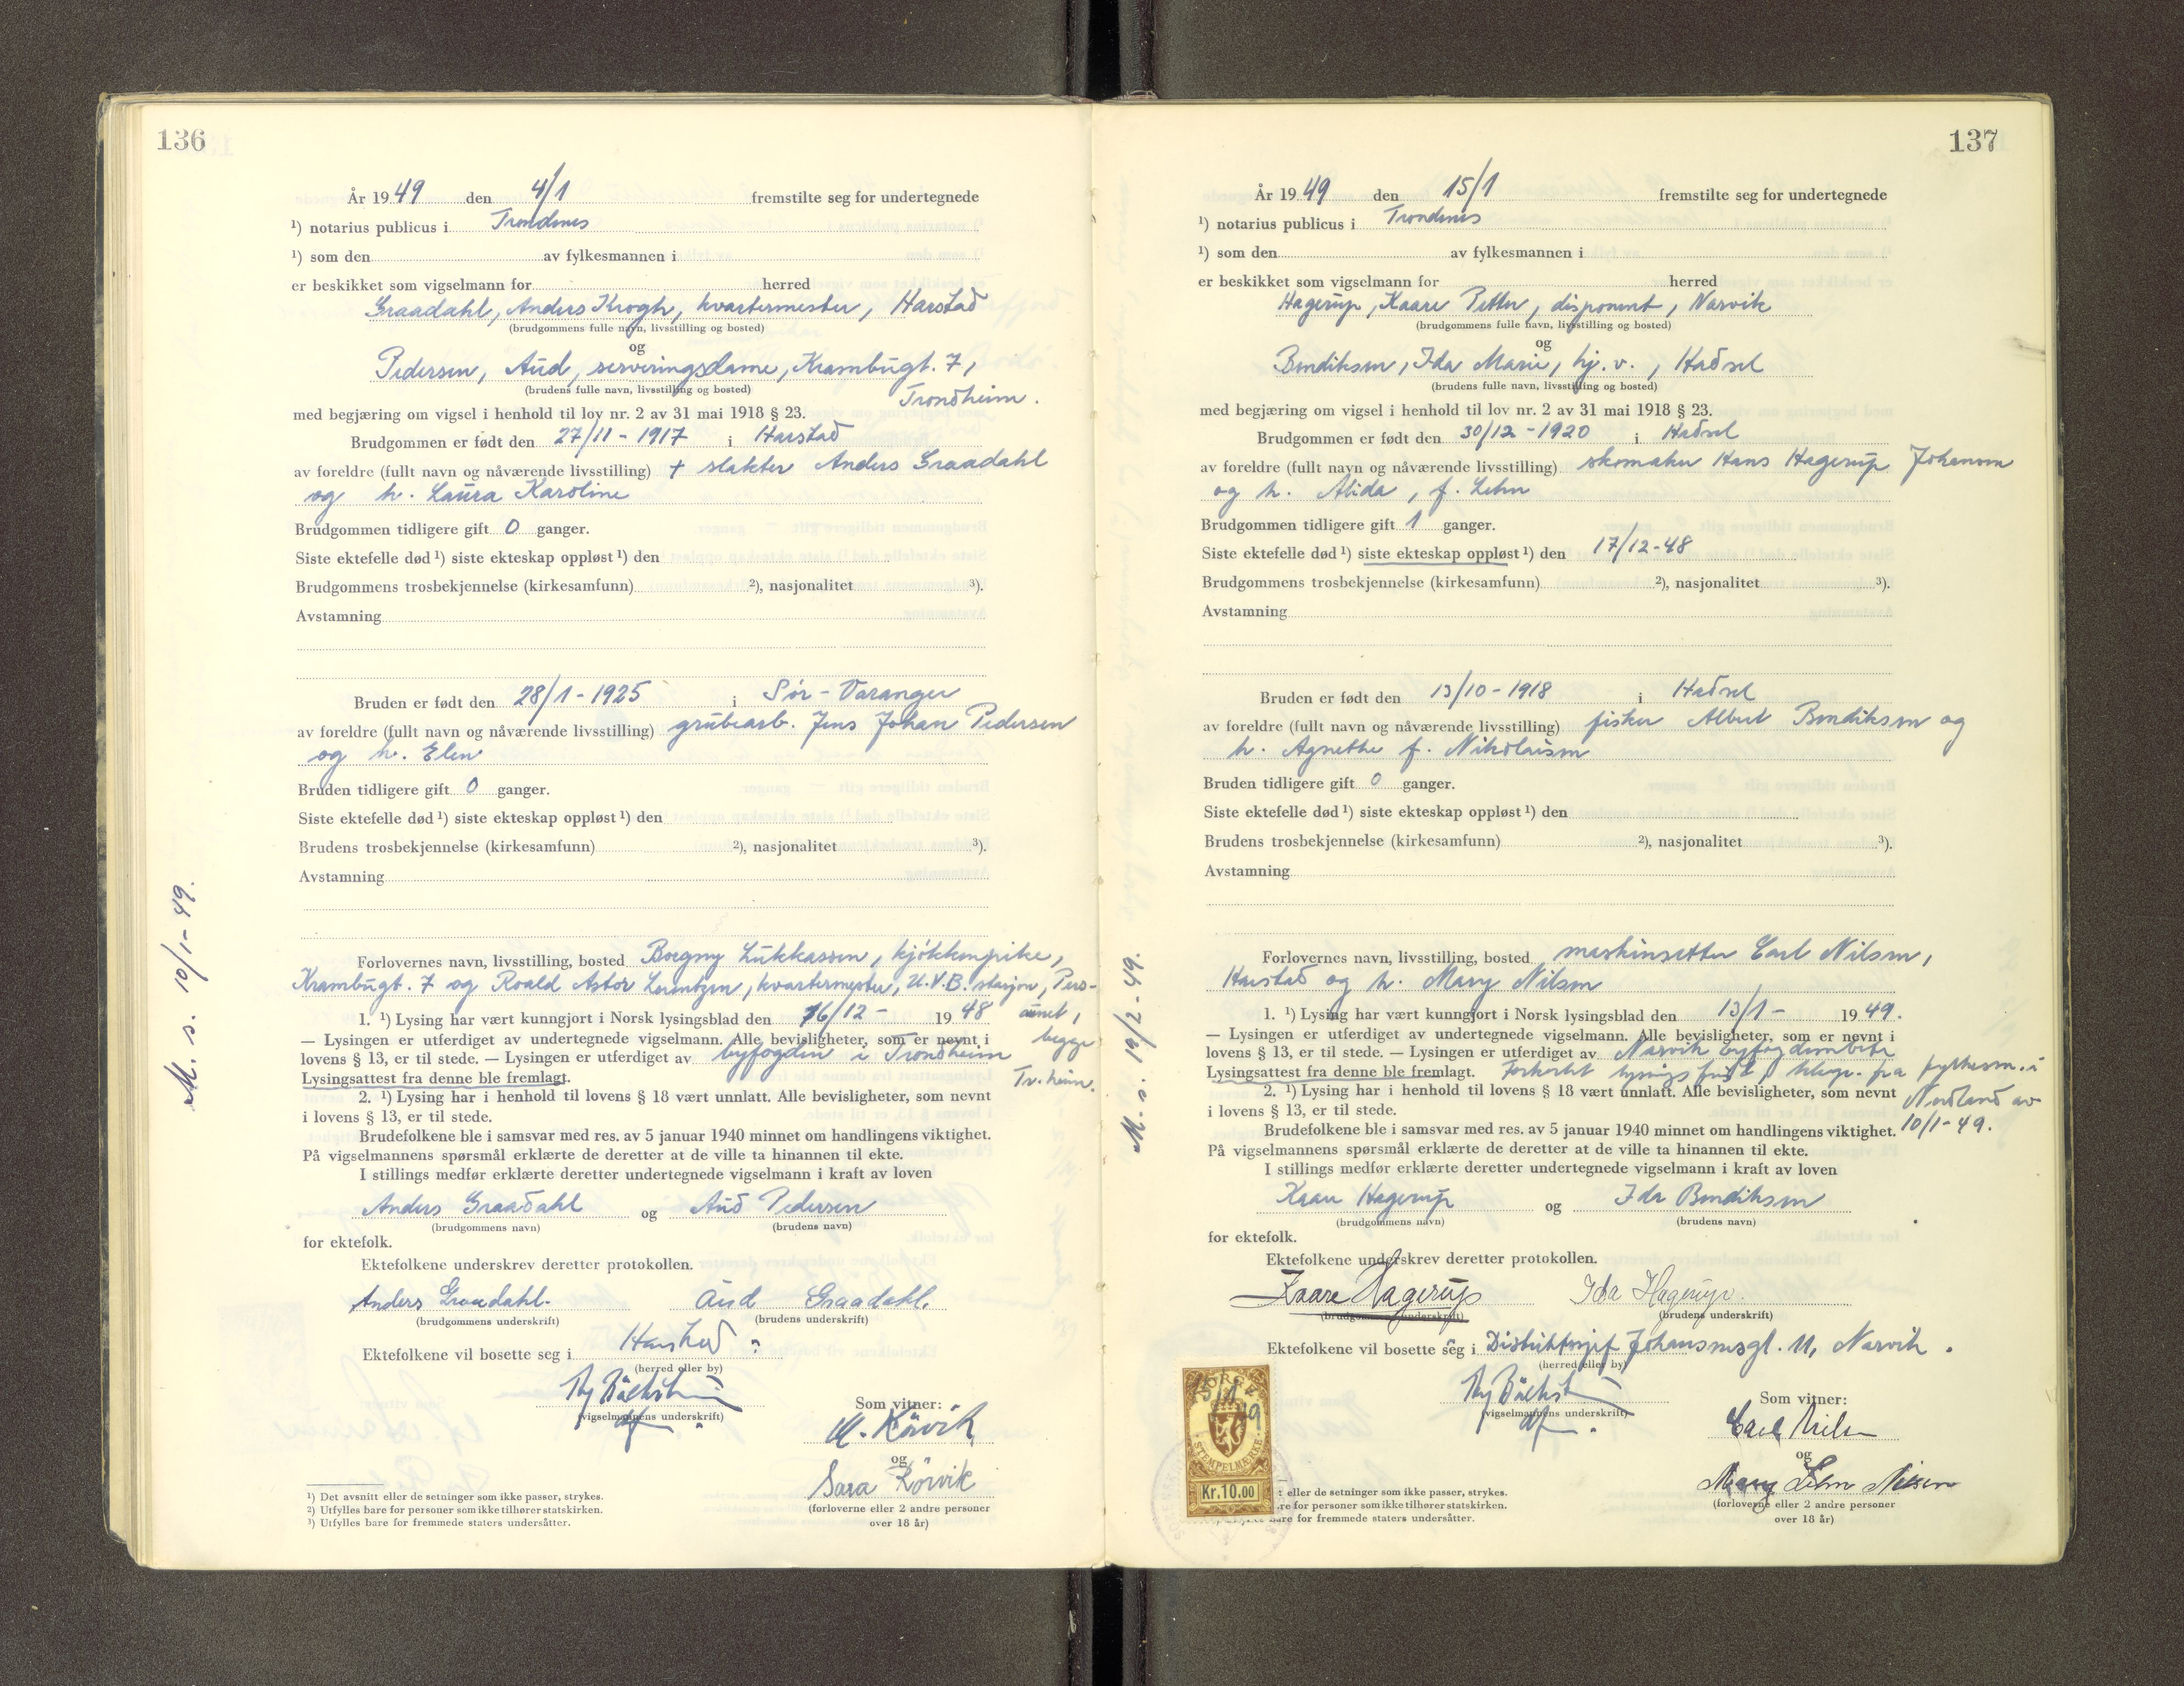 136
År 1949 den 4/1 fremstilte seg for undertegnede
¹) notarius publicus i Trondenes
¹) som den av fylkesmannen i
er beskikket som vigselmann for herred
Graadahl, Anders Krogh, kvartermester, Harstad
(brudgommens fulle navn, livsstilling og bosted)
og
Pedersen, Aud, serveringsdame, Krambugt. 7,
(brudens fulle navn, livsstilling og bosted)
Trondheim.
med begjæring om vigsel i henhold til lov nr. 2 av 31 mai 1918 § 23.
Brudgommen er født den 27/11 - 1917 i Harstad
av foreldre (fullt navn og nåværende livsstilling) † slakter Anders Graadahl
og h. Laura Karoline
Brudgommen tidligere gift 0 ganger.
Siste ektefelle død ¹) siste ekteskap oppløst ¹) den
Brudgommens trosbekjennelse (kirkesamfunn) ²), nasjonalitet ³).
Avstamning
Bruden er født den 28/1 - 1925 i Sør-Varanger
av foreldre (fullt navn og nåværende livsstilling) grubearb. Jens Johan Pedersen
og h. Elen
Bruden tidligere gift 0 ganger.
Siste ektefelle død ¹) siste ekteskap oppløst ¹) den
Brudens trosbekjennelse (kirkesamfunn) ²), nasjonalitet ³).
Avstamning
M. s. 10/1-49.
Forlovernes navn, livsstilling, bosted Borgny Lukkassen, kjøkkenpike,
Krambugt. 7 og Roald Astor Lorentzen, kvartermester, U.V.B. stasjon, Pers-
aunet,
1. ¹) Lysing har vært kunngjort i Norsk lysingsblad den 16/12 - 1948
— Lysingen er utferdiget av undertegnede vigselmann. Alle bevisligheter, som er nevnt i
begge
lovens § 13, er til stede. — Lysingen er utferdiget av byfogden i Trondheim
Tr.heim.
Lysingsattest fra denne ble fremlagt.
2. ¹) Lysing har i henhold til lovens § 18 vært unnlatt. Alle bevisligheter, som nevnt
i lovens § 13, er til stede.
Brudefolkene ble i samsvar med res. av 5 januar 1940 minnet om handlingens viktighet.
På vigselmannens spørsmål erklærte de deretter at de ville ta hinannen til ekte.
I stillings medfør erklærte deretter undertegnede vigselmann i kraft av loven
Anders Graadahl og Aud Pedersen
(brudgommens navn) (brudens navn)
for ektefolk.
Ektefolkene underskrev deretter protokollen.
Anders Graadahl. Aud Graadahl.
(brudgommens underskrift) (brudens underskrift)
Ektefolkene vil bosette seg i Harstad
(herred eller by)
(vigselmannens underskrift)
Som vitner:
M. Rörvik
og
Sara Rörvik
(forloverne eller 2 andre personer
over 18 år)
¹) Det avsnitt eller de setninger som ikke passer, strykes.
²) Utfylles bare for personer som ikke tilhører statskirken.
³) Utfylles bare for fremmede staters undersåtter.
137
År 1949 den 15/1 fremstilte seg for undertegnede
¹) notarius publicus i Trondenes
¹) som den av fylkesmannen i
er beskikket som vigselmann for herred
Hagerup, Kaare Petter, disponent, Narvik
(brudgommens fulle navn, livsstilling og bosted)
og
Bendiksen, Ida Marie, hj. v., Hadsel
(brudens fulle navn, livsstilling og bosted)
med begjæring om vigsel i henhold til lov nr. 2 av 31 mai 1918 § 23.
Brudgommen er født den 30/12 - 1920 i Hadsel
av foreldre (fullt navn og nåværende livsstilling) skomaker Hans Hagerup Johansen
og h. Alida, f. Lehn
Brudgommen tidligere gift 1 ganger.
Siste ektefelle død ¹) siste ekteskap oppløst ¹) den 17/12-48
Brudgommens trosbekjennelse (kirkesamfunn) ²), nasjonalitet ³).
Avstamning
Bruden er født den 13/10 - 1918 i Hadsel
av foreldre (fullt navn og nåværende livsstilling) fisker Albert Bendiksen og
h. Agnethe f. Nikolaisen
Bruden tidligere gift 0 ganger.
Siste ektefelle død ¹) siste ekteskap oppløst ¹) den
Brudens trosbekjennelse (kirkesamfunn) ²), nasjonalitet ³).
Avstamning
M. s. 19/2-49.
Forlovernes navn, livsstilling, bosted maskinsetter Carl Nilsen,
Harstad og h. Mary Nilsen
1. ¹) Lysing har vært kunngjort i Norsk lysingsblad den 13/1 - 1949.
— Lysingen er utferdiget av undertegnede vigselmann. Alle bevisligheter, som er nevnt i
lovens § 13, er til stede. — Lysingen er utferdiget av Narvik byfogdembete
Lysingsattest fra denne ble fremlagt. Forkortet lysingsfrist, fra fylkesm. i
2. ¹) Lysing har i henhold til lovens § 18 vært unnlatt. Alle bevisligheter, som nevnt
Nordland av
i lovens § 13, er til stede.
10/1-49.
Brudefolkene ble i samsvar med res. av 5 januar 1940 minnet om handlingens viktighet.
På vigselmannens spørsmål erklærte de deretter at de ville ta hinannen til ekte.
I stillings medfør erklærte deretter undertegnede vigselmann i kraft av loven
Kaare Hagerup og Ida Bendiksen
(brudgommens navn) (brudens navn)
for ektefolk.
Ektefolkene underskrev deretter protokollen.
Kaare Hagerup Ida Hagerup.
(brudgommens underskrift) (brudens underskrift)
Ektefolkene vil bosette seg i Distriktssjef Johansensgt. 11, Narvik.
(herred eller by)
(vigselmannens underskrift)
Som vitner:
Carl Nilsen
og
Mary Lehn Nilsen
(forloverne eller 2 andre personer
over 18 år)
NORGE
STEMPELMERKE
Kr.10.00
eller de setninger som ikke passer, strykes.
re for personer som ikke tilhører statskirken.
bare for fremmede staters undersåtter.